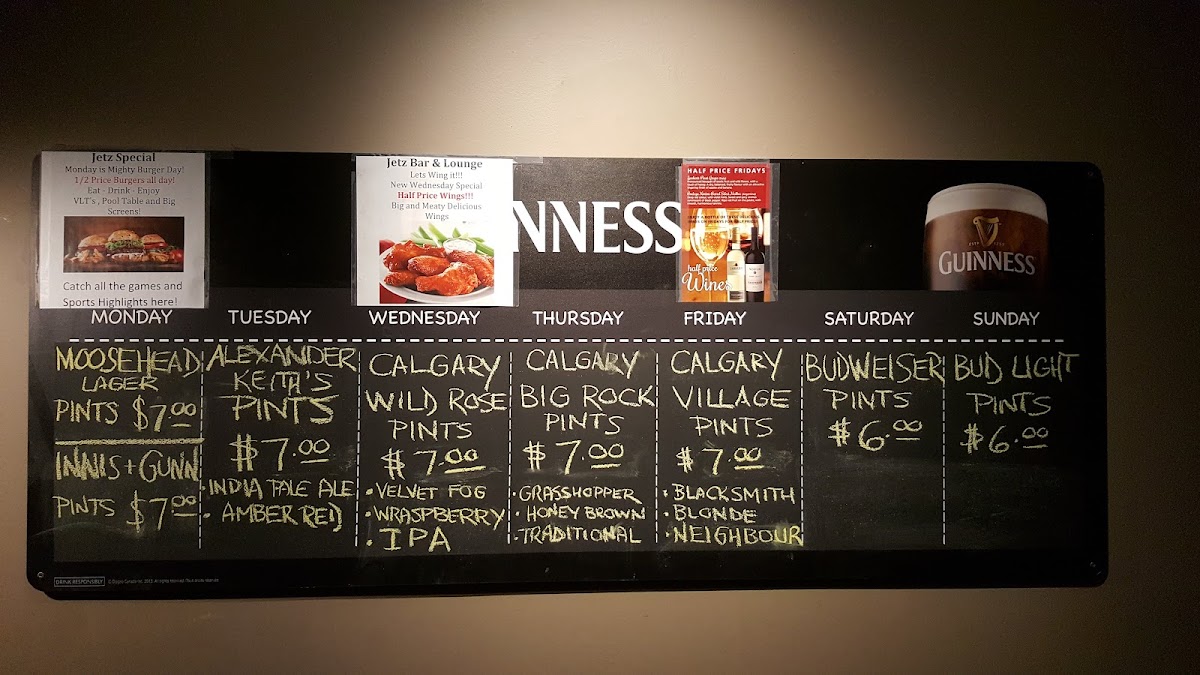 Jetz Special
Monday is Mighty Burger Day!
1/2 Price Burgers all day!
Eat - Drink - Enjoy
VLT's , Pool Table and Big
Screens!
Catch all the games and
Sports Highlights here!
Jetz Bar & Lounge
Lets Wing it!!!
New Wednesday Special
Half Price Wings!!!
Big and Meaty Delicious
Wings
NNESS
HALF PRICE FRIDAYS
half price
Wines
GUINNESS
MONDAY
MOOSEHEAD
LAGER
PINTS $7.00
INNIS+GUNN
PINTS $7.00
TUESDAY
ALEXANDER
KEITH'S
PINTS
$7.00
• INDIA PALE ALE
• AMBER RED
WEDNESDAY
CALGARY
WILD ROSE
PINTS
$7.00
• VELVET FOG
• WRASPBERRY
• IPA
THURSDAY
CALGARY
BIG ROCK
PINTS
$7.00
• GRASSHOPPER
• HONEY BROWN
• TRADITIONAL
FRIDAY
CALGARY
VILLAGE
PINTS
$7.00
• BLACKSMITH
• BLONDE
• NEIGHBOUR
SATURDAY
BUDWEISER
PINTS
$6.00
SUNDAY
BUD LIGHT
PINTS
$6.00
DRINK RESPONSIBLY